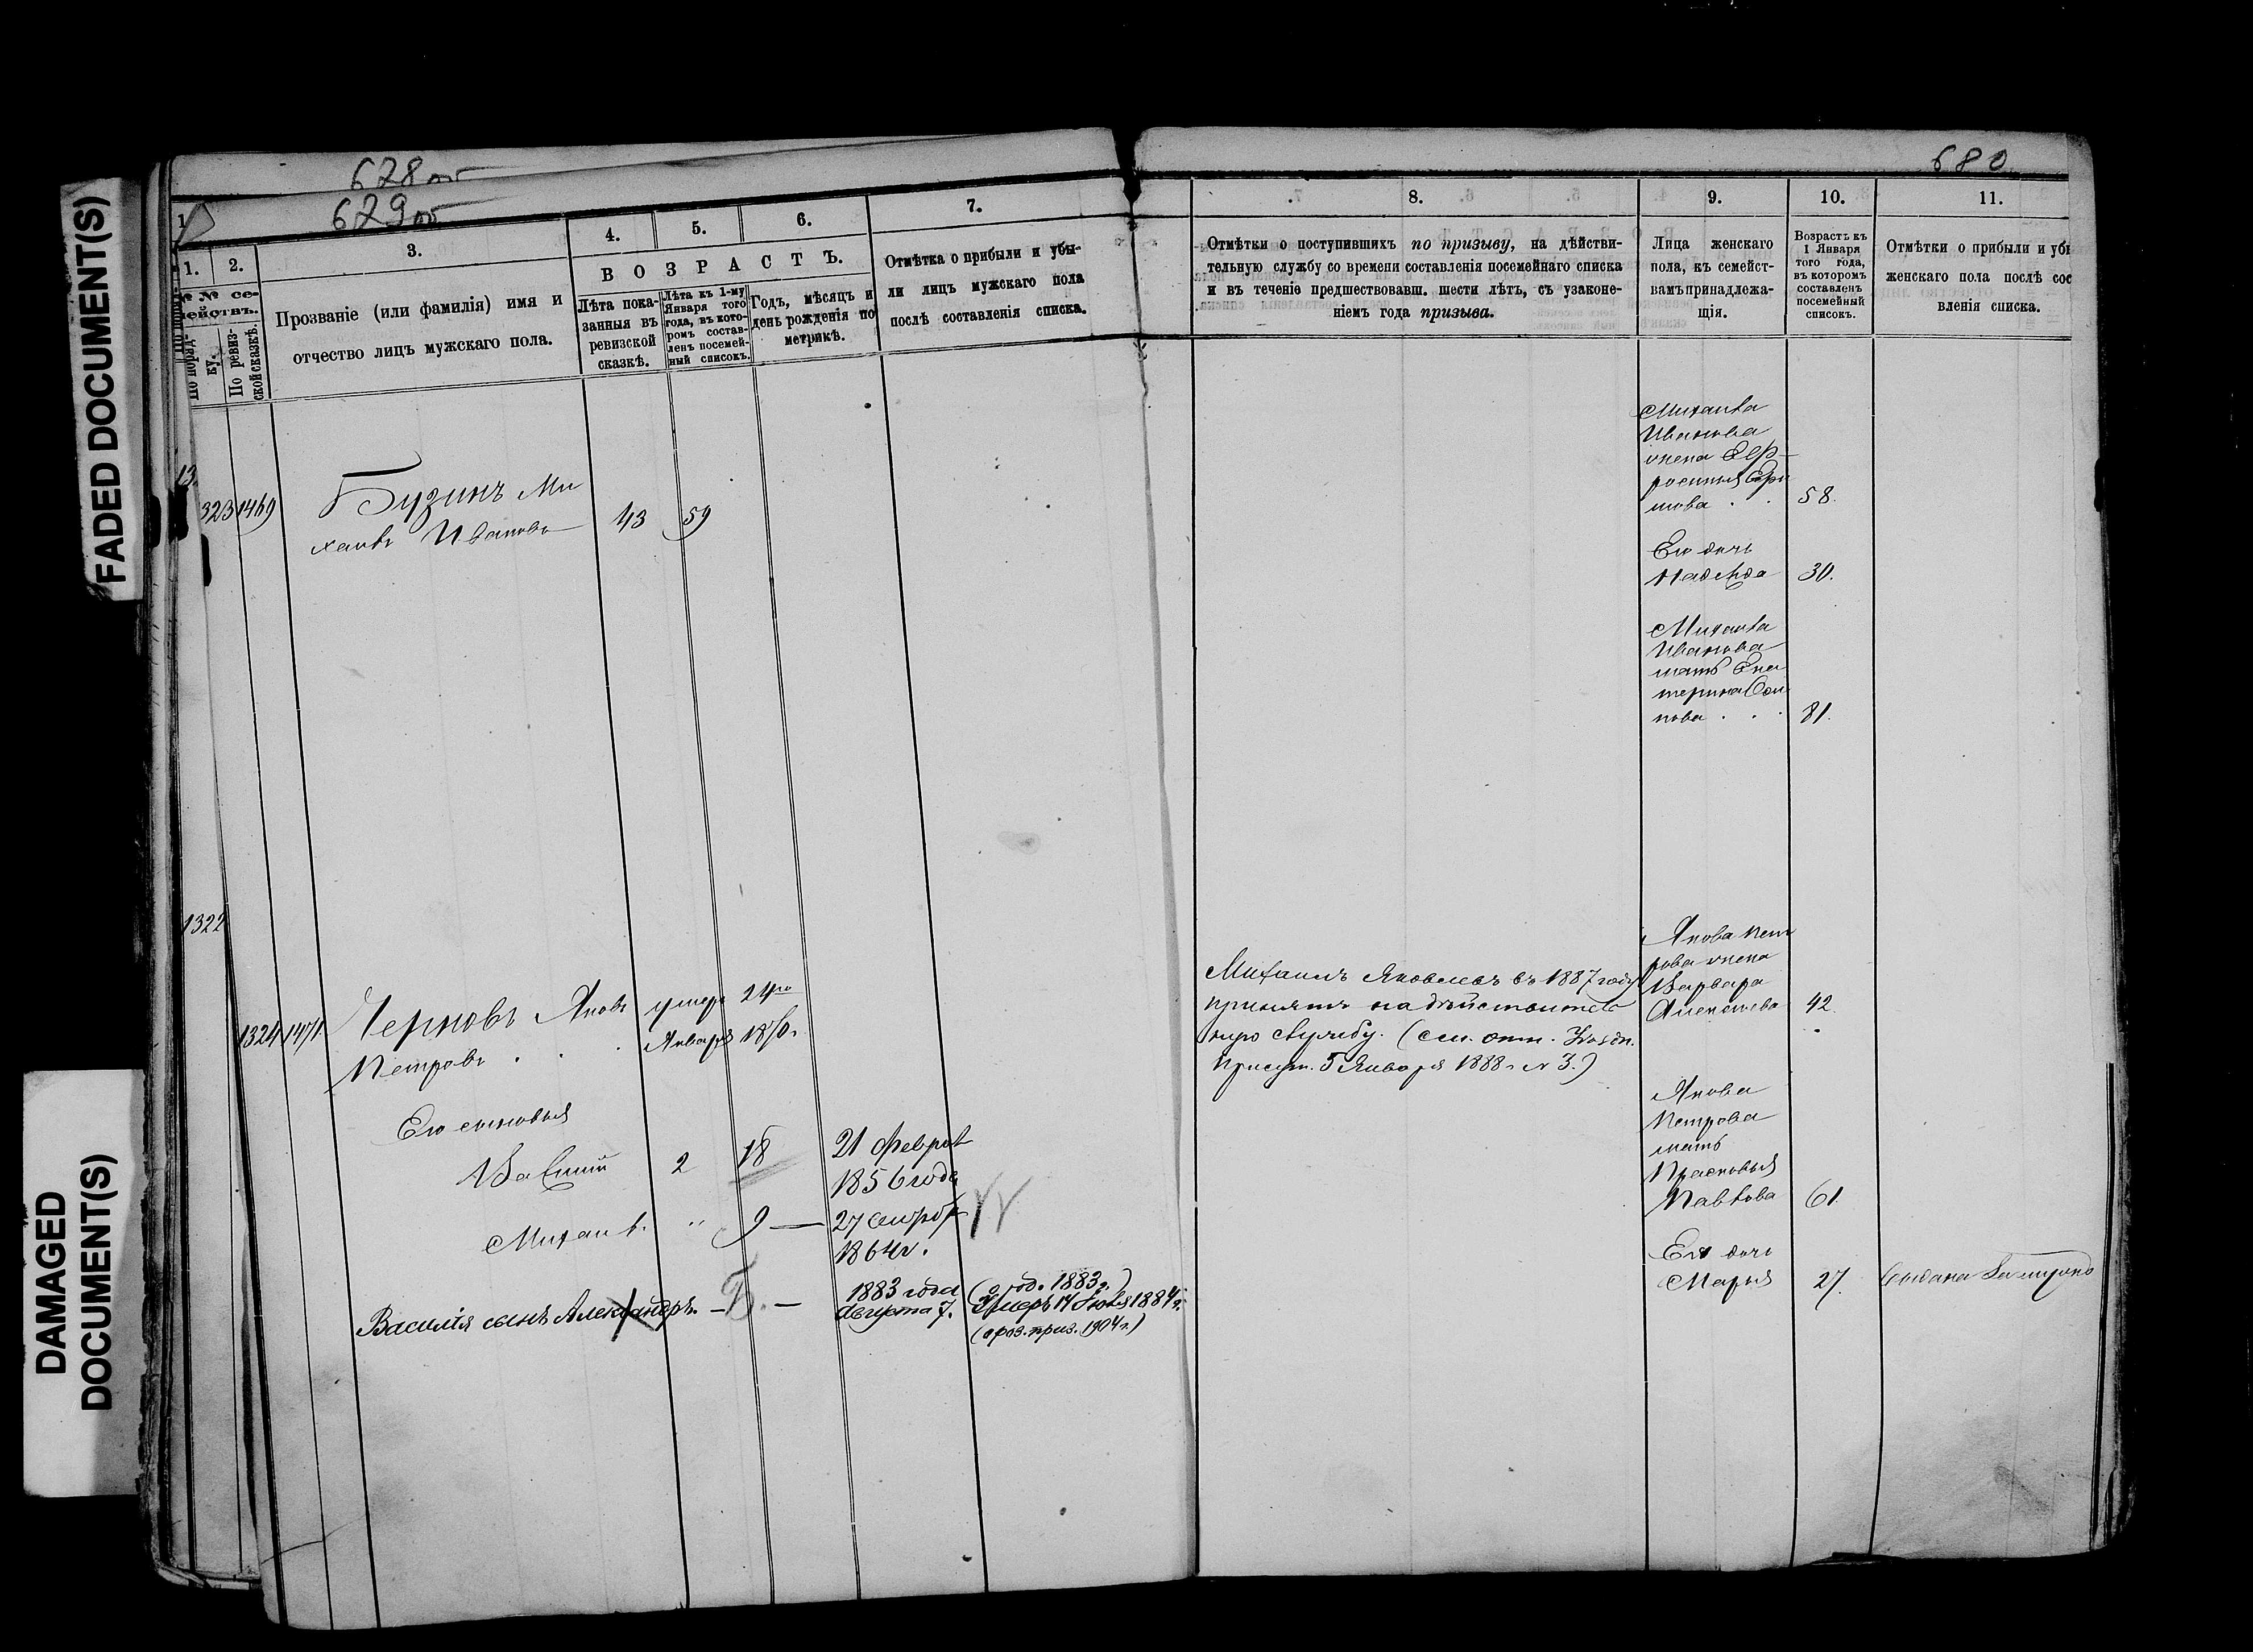 FADED DOCUMENT(S)
DAMAGED
DOCUMENT(S)
628 об
629 об
680
1.
2.
3.
4.
5.
6.
7.
№ № се-
мействъ.
По поряд-
ку.
По ревиз-
ской сказкѣ.
Прозваніе (или фамилія) имя и
отчество лицъ мужскаго пола.
ВОЗРАСТЪ.
Лѣта пока-
занныя въ
ревизской
сказкѣ.
Лѣта къ 1-му
Января того
года, въ кото-
ромъ состав-
ленъ посемей-
ный списокъ.
Годъ, мѣсяцъ и
день рожденія по
метрикѣ.
Отмѣтка о прибыли и убы-
ли лицъ мужскаго пола
послѣ составленія списка.
13
323 1469
Бузинъ Ми
хаилъ Ивановъ
43 59
1322
1324 1471
Черновъ Яковъ
Петровъ . . .
умеръ 24го
Января 1870г.
Его сыновья
Василій 2 18 21 Феврал
1856 года
Михаилъ. " 9 — 27 Сентябр
1864г.
Василія сынъ Александръ. — Б. — 1883 года
Августа 7.
(род. 1883г.)
Умеръ 14 Іюля 1884 г.
(приз. 1904 г.)
8.
9.
10.
11.
Отмѣтки о поступившихъ по призыву, на дѣйстви-
тельную службу со времени составленія посемейнаго списка
и въ теченіе предшествовавш. шести лѣтъ, съ узаконе-
ніемъ года призыва.
Лица женскаго
пола, къ семейст-
вамъ принадлежа-
щія.
Возрастъ къ
1 Января
того года,
въ которомъ
составленъ
посемейный
списокъ.
Отмѣтки о прибыли и убы
женскаго пола послѣ сос
вленія списка.
Михаила
Иванова
жена Евф-
росинья Ефи
мова . . 58.
Его дочь
Надежда 30.
Михаила
Иванова
мать Ека
терина Оси
пова . . . 81.
Михаилъ Яковлевъ въ 1887 году
принятъ на дѣйствитель
ную службу. (см. отн. Уѣздн.
Присут. 5 Января 1888 г. № 3.)
Якова Пет
рова жена
Варвара
Алексѣева 42.
Якова
Петрова
мать
Прасковья
Павлова 61.
Его дочь
Марья 27.